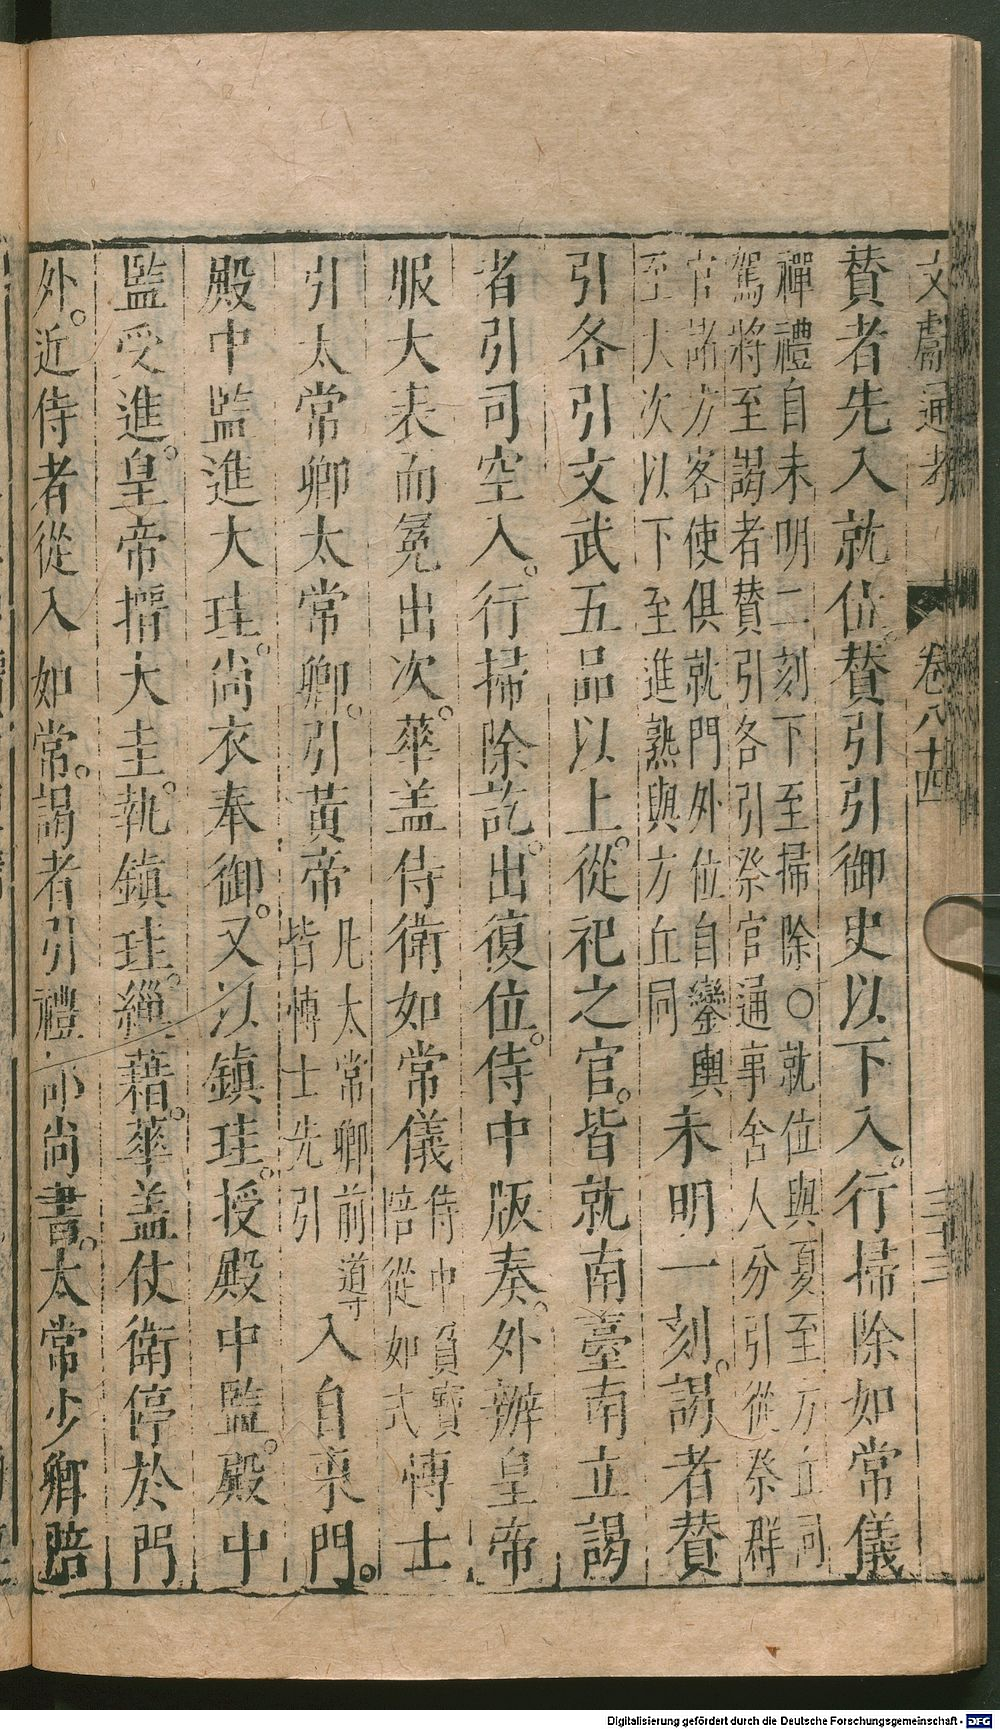 文獻通考 卷八十四 三十三
贊者先入就位。贊引引御史以下入。行掃除如常儀
禪禮自未明二刻下至掃除〇就位與夏至方丘同
駕將至謁者贊引各引祭官通事舍人分引從祭群
官諸方客使俱就門外位自鑾輿
至大次以下至進熟與方丘同
未明一刻。謁者贊
引各引文武五品以上。從祀之官。皆就南臺南立謁
者引司空入。行掃除訖。出復位。侍中版奏。外辦皇帝
服大裘而冕出次。華盖侍衛如常儀
侍中負寶
陪從如式
博士
引太常卿太常卿。引黃帝
凡太常卿前導
皆博士先引
入自東門。
殿中監進大珪。尚衣奉御。又以鎮珪。授殿中監。殿中
監受進。皇帝搢大圭。執鎮珪。繅藉。華盖仗衛停於門
外。近侍者從入如常。謁者引禮部尚書。太常少卿陪
Digitalisierung gefördert durch die Deutsche Forschungsgemeinschaft - DFG